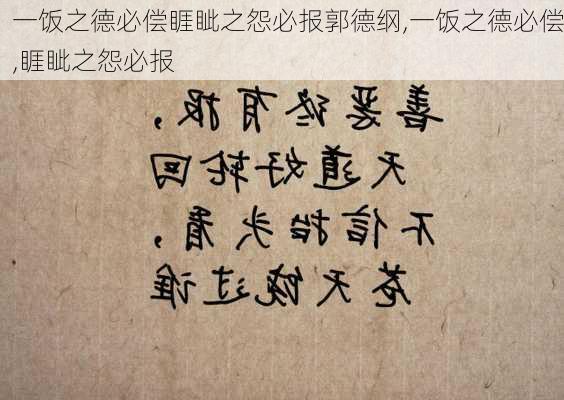 一饭之德必偿睚眦之怨必报郭德纲,一饭之德必偿
,睚眦之怨必报
善恶终有报，
天道好轮回
不信抬头看，
苍天饶过谁